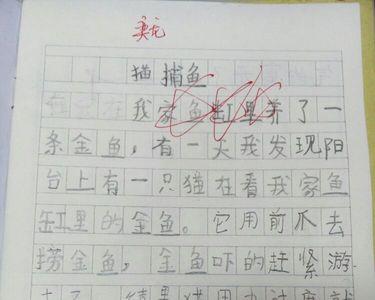 猫捕鱼
我家鱼缸里养了一
条金鱼,有一天我发现阳
台上有一只猫在看我家鱼
缸里的金鱼。它用前爪去
捞金鱼,金鱼吓的赶紧游